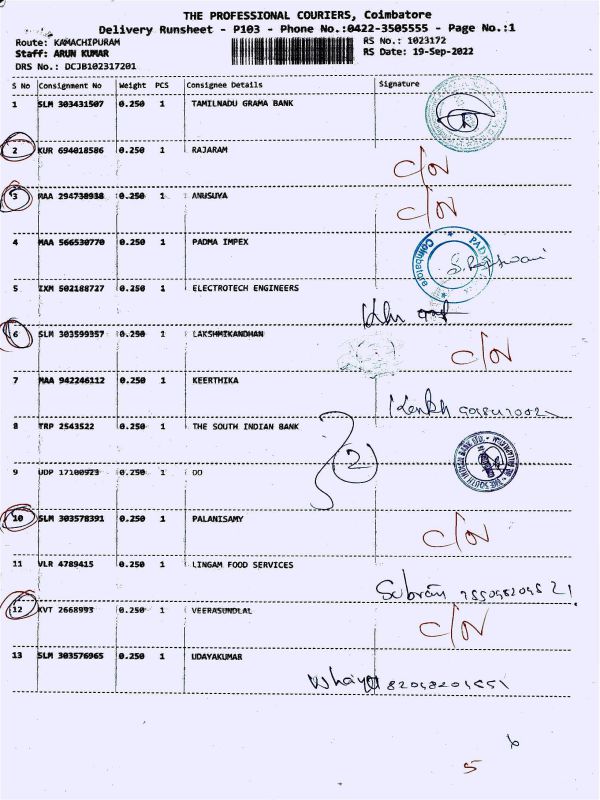 THE PROFESSIONAL COURIERS, Coimbatore
Delivery Runsheet - P103 - Phone No.:0422-3505555 - Page No.:1
Route: KAMACHIPURAM RS No.: 1023172
Staff: ARUN KUMAR RS Date: 19-Sep-2022
DRS No.: DCJB102317201
S No Consignment No Weight PCS Consignee Details Signature
1 SLM 303431507 0.250 1 TAMILNADU GRAMA BANK
2 KUR 694018586 0.250 1 RAJARAM C/N
3 MAA 294738938 0.250 1 ANUSUYA C/N
4 MAA 566530770 0.250 1 PADMA IMPEX
5 IXM 502188727 0.250 1 ELECTROTECH ENGINEERS
6 SLM 303599357 0.250 1 LAKSHMIKANDHAN C/N
7 MAA 942246112 0.250 1 KEERTHIKA
8 TRP 2543522 0.250 1 THE SOUTH INDIAN BANK
2
9 UDP 17100923 0.250 1 DO
10 SLM 303578391 0.250 1 PALANISAMY C/N
11 VLR 4789415 0.250 1 LINGAM FOOD SERVICES
12 KVT 2668993 0.250 1 VEERASUNDLAL C/N
13 SLM 303576965 0.250 1 UDAYAKUMAR
6
5